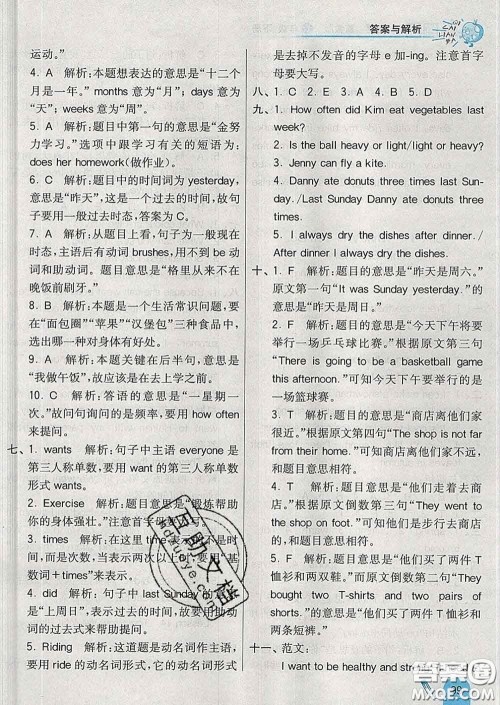 答案与解析
运动。”
4. A 解析:本题想表达的意思是“十二个
月是一年。” months 意为“月”; days 意
为“天”; weeks 意为“周”。
5. A 解析:题目中第一句的意思是“金努
力学习。”选项中跟学习有关的短语为:
does her homework(做作业)。
6. C 解析:题目中的时间词为 yesterday,
意思是“昨天”,这是一个过去的时间,故句
子要用一般过去时态,答案为 C。
7. A 解析:从题目上看,句子为一般现在
时态,主语后有动词 brushes,用不到 be 动
词和助动词。题目意思是“格里从来不在
晚饭前刷牙。”
8. B 解析:本题为一个生活常识问题,就
在“面包圈”“苹果”“汉堡包”三种食品中,
选出哪一种对身体有好处。
9. A 解析:本题关键在后半句,意思是
“我做午饭”,故应该是在去上学之前。
10. C 解析:答语的意思是“一星期一
次。”故问句询问的是频率,要用 how often
来提问。
七、1. wants 解析:句子中主语 everyone 是
第三人称单数,要用 want 的第三人称单数
形式 wants。
2. Exercise 解析:题目意思是“锻炼帮助
你的身体强壮。”注意首字母
3. times 解析:题目中的意思
间,而是次数,当表示两次以上
数词+times”来表示。
4. did 解析:句子中 last Sunday
是“上周日”,表示过去的时间,故要用助动
词的过去式来帮助提问。
5. Riding 解析:这道题是动名词作主语,
要用 ride 的动名词形式,它的动名词形式
是去掉不发音的字母 e 加-ing。注意首字
母要大写。
八、1. C 2. E 3. A 4. B 5. D
九、1. How often did Kim eat vegetables last
week?
2. Is the ball heavy or light/light or heavy?
3. Jenny can fly a kite.
4. Danny ate donuts three times last Sun-
day. /Last Sunday Danny ate donuts three
times.
5. I always dry the dishes after dinner. /
After dinner I always dry the dishes.
十、1. F 解析:题目的意思是“昨天是周六。”
原文第一句“It was Sunday yesterday.”的
意思是“昨天是周日。”
2. F 解析:题目意思是“今天下午将要
举行一场乒乓球比赛。”根据原文第三句
“There is going to be a basketball game
this afternoon.”可知今天下午要举行的是
一场篮球赛。
3. T 解析:题目意思是“商店离他们家
很近。”根据原文第四句“The shop is not
far from their home.”意思是“商店离他们
家不是很远。”和题目意思相符。
4. T 解析:题目意思是“他们走着去商
店。”根据原文倒数第三句“They went to
the shop on foot.”的意思是“他们步行去商
店。”和题目意思相符。
5. F 解析:题目意思是“他们买了两件 T
恤衫和两双鞋。”而原文倒数第二句“They
bought two T-shirts and two pairs of
shorts.”的意思是“他们买了两件 T 恤衫和
两条短裤。”
十一、范文:
I want to be healthy and